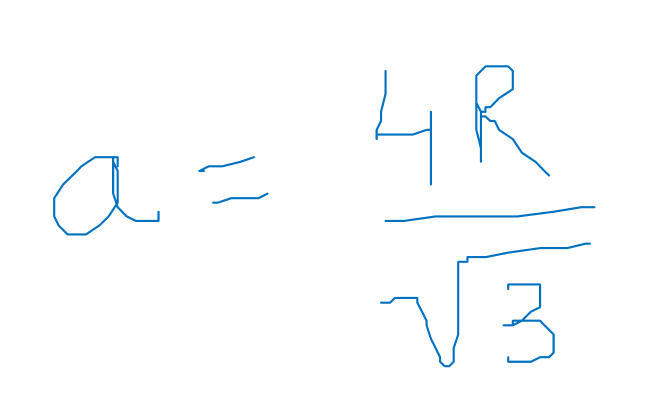 a = \frac{4R}{\sqrt{3}}